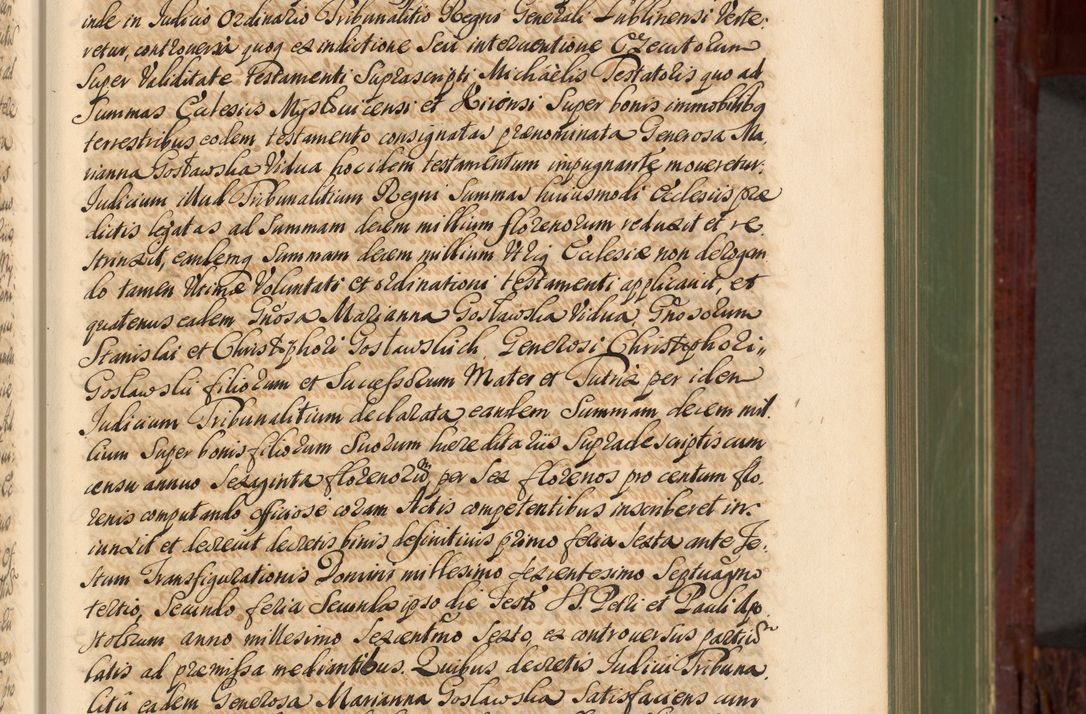 inde in Iudicio Ordinario Tribunalitio Regni Generali Lublinensi Verte,
retur, controversia quoq ex indictione Seu interventione Executorum
Super Validitate testamenti Suprascripti Michaelis Testatoris quo ad
Summas Ecclesiis Mysłowicensi et super bonis immobilibq
terrestribus eodem testamento consignatas prænominata Generosa Ma,
rianna Gosławska Vidua hocidem testamentum impugnante moveretur,
Iudicium illud Tribunalitium Regni Summas huiusmodi Ecclesiis præ
dictis legatas ad Summam decem millium florenorum reduxit et re,
strinxit, eandemq Summam decem millium Utriq Ecclesiæ non derogan
do tamen Ultimæ Voluntati et ordinationi testamenti applicavit, et
quatenus eadem Gnosa Marianna Gosławska Vidua, Gnosorum
Stanislai et Christophori Gosławskich, Generosi Christophori
Gosławskii filiorum et Successorum Mater et Tutrix per idem
Iudicium Tribunalitium declarata eandem Summam decem mil
lium Super bonis filiorum Suorum hæreditariis Supradescriptis cum
censu annuo Sexaginta florenorum per Sex florenos pro centum flo,
renis computando officiose coram Actis competentibus inscriberet in
iunxit et decrevit decretis binis definitivis primo feria Sexta ante Fe,
stum Transfigurationis Domini millesimo sexcentesimo Septuagmo
tertio, Secundo feria Secunda ipso die Festo SS. Petri et Pauli Apo
stolorum anno millesimo Sexcentmo Sexto, ex controversiis partiū
latis ad præmissa mediantibus. Quibus decretis Iudicii Tribuna,
litii eadem Generosa Marianna Gosławska Satisfaciens cum